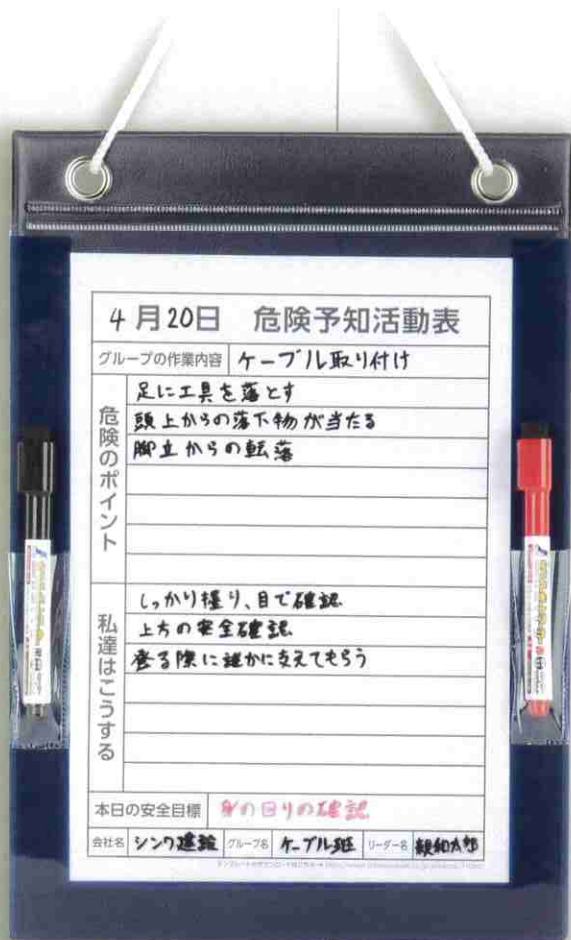 4月20日 危険予知活動表
グループの作業内容 ケーブル取り付け
危険のポイント
足に工具を落とす
頭上からの落下物が当たる
脚立からの転落
私達はこうする
しっかり握り、目で確認
上方の安全確認
登る際に誰かに支えてもらう
本日の安全目標 身の回りの確認
会社名 シンワ建設 グループ名 ケーブル班 リーダー名 親和太郎